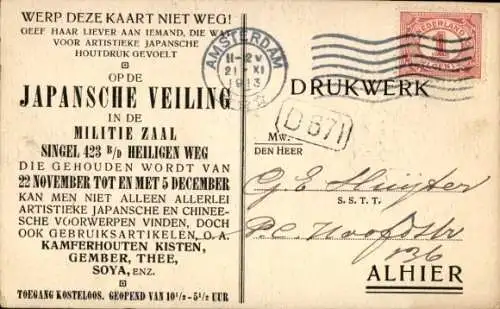 WERP DEZE KAART NIET WEG!
GEEF HAAR LIEVER AAN IEMAND, DIE WAT
VOOR ARTISTIEKE JAPANSCHE
HOUTDRUK GEVOELT
OP DE
JAPANSCHE VEILING
IN DE
MILITIE ZAAL
SINGEL 423 B/D HEILIGEN WEG
DIE GEHOUDEN WORDT VAN
22 NOVEMBER TOT EN MET 5 DECEMBER
KAN MEN NIET ALLEEN ALLERLEI
ARTISTIEKE JAPANSCHE EN CHINEE-
SCHE VOORWERPEN VINDEN, DOCH
OOK GEBRUIKSARTIKELEN, O. A.
KAMFERHOUTEN KISTEN,
GEMBER, THEE,
SOYA, ENZ.
TOEGANG KOSTELOOS. GEOPEND VAN 10 1/2 - 5 1/2 UUR
AMSTERDAM
11-2V
21 XI
1913
NEDERLAND
1
DRUKWERK
D 671
Mw.
DEN HEER
G. E. Huijter
S. S. T. T.
P.C. Hooftstr
136
ALHIER